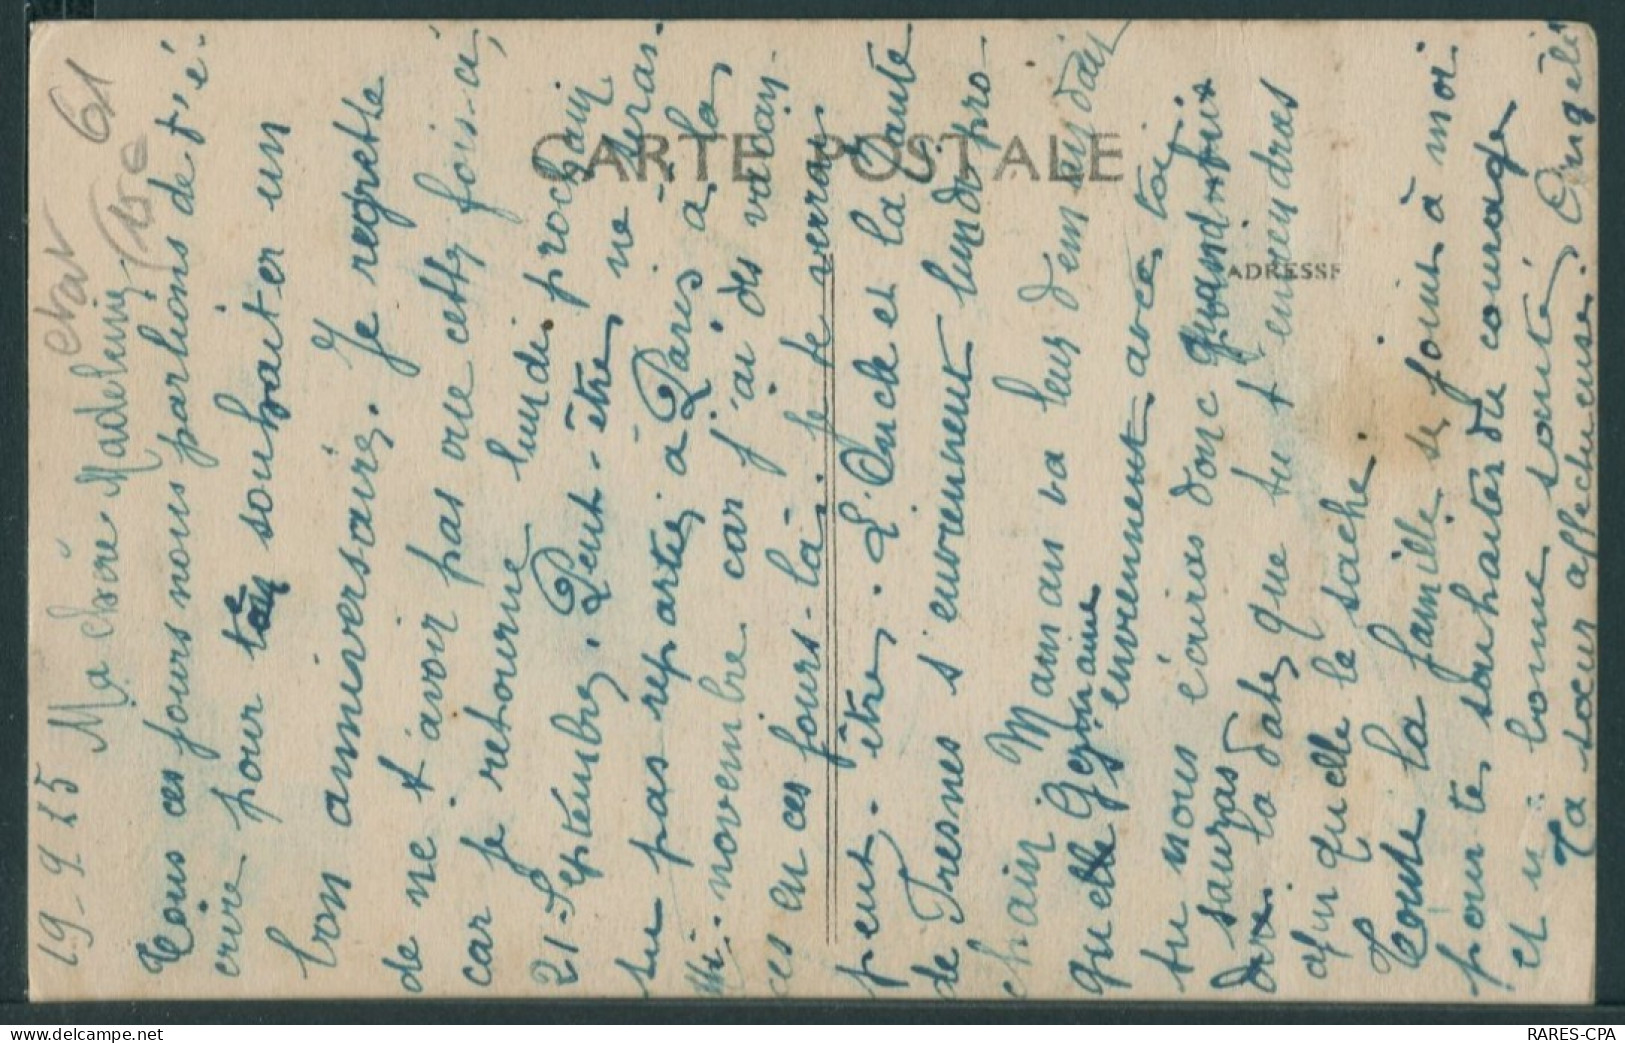 19-9-25 Ma chère Madeleine
Tous ces jours nous parlions de t'é-
crire pour te souhaiter un
bon anniversaire. Je regrette
de ne t'avoir pas vue cette fois-ci,
car je retourne lundi prochain
21-Septembre. Peut-être ne seras-
tu pas repartie à Paris à la
Mi-novembre car j'ai des vacan-
ces en ces jours-là. Je te verrai
peut-être. L'Oncle et la Tante
de Tresnes s'enviennent lundi pro-
chain Maman va leur demandait
qu'elle Germaine s'enviennent avec toi
tu nous écriras donc quand tu
sauras la date que tu t'enviendras
afin qu'elle le sache.
Toute la famille se joint à moi
pour te souhaiter du courage
et une bonne santé. Angèle
Ta sœur affectueuse.
CARTE POSTALE
ADRESSE
61
char
RARES-CPA